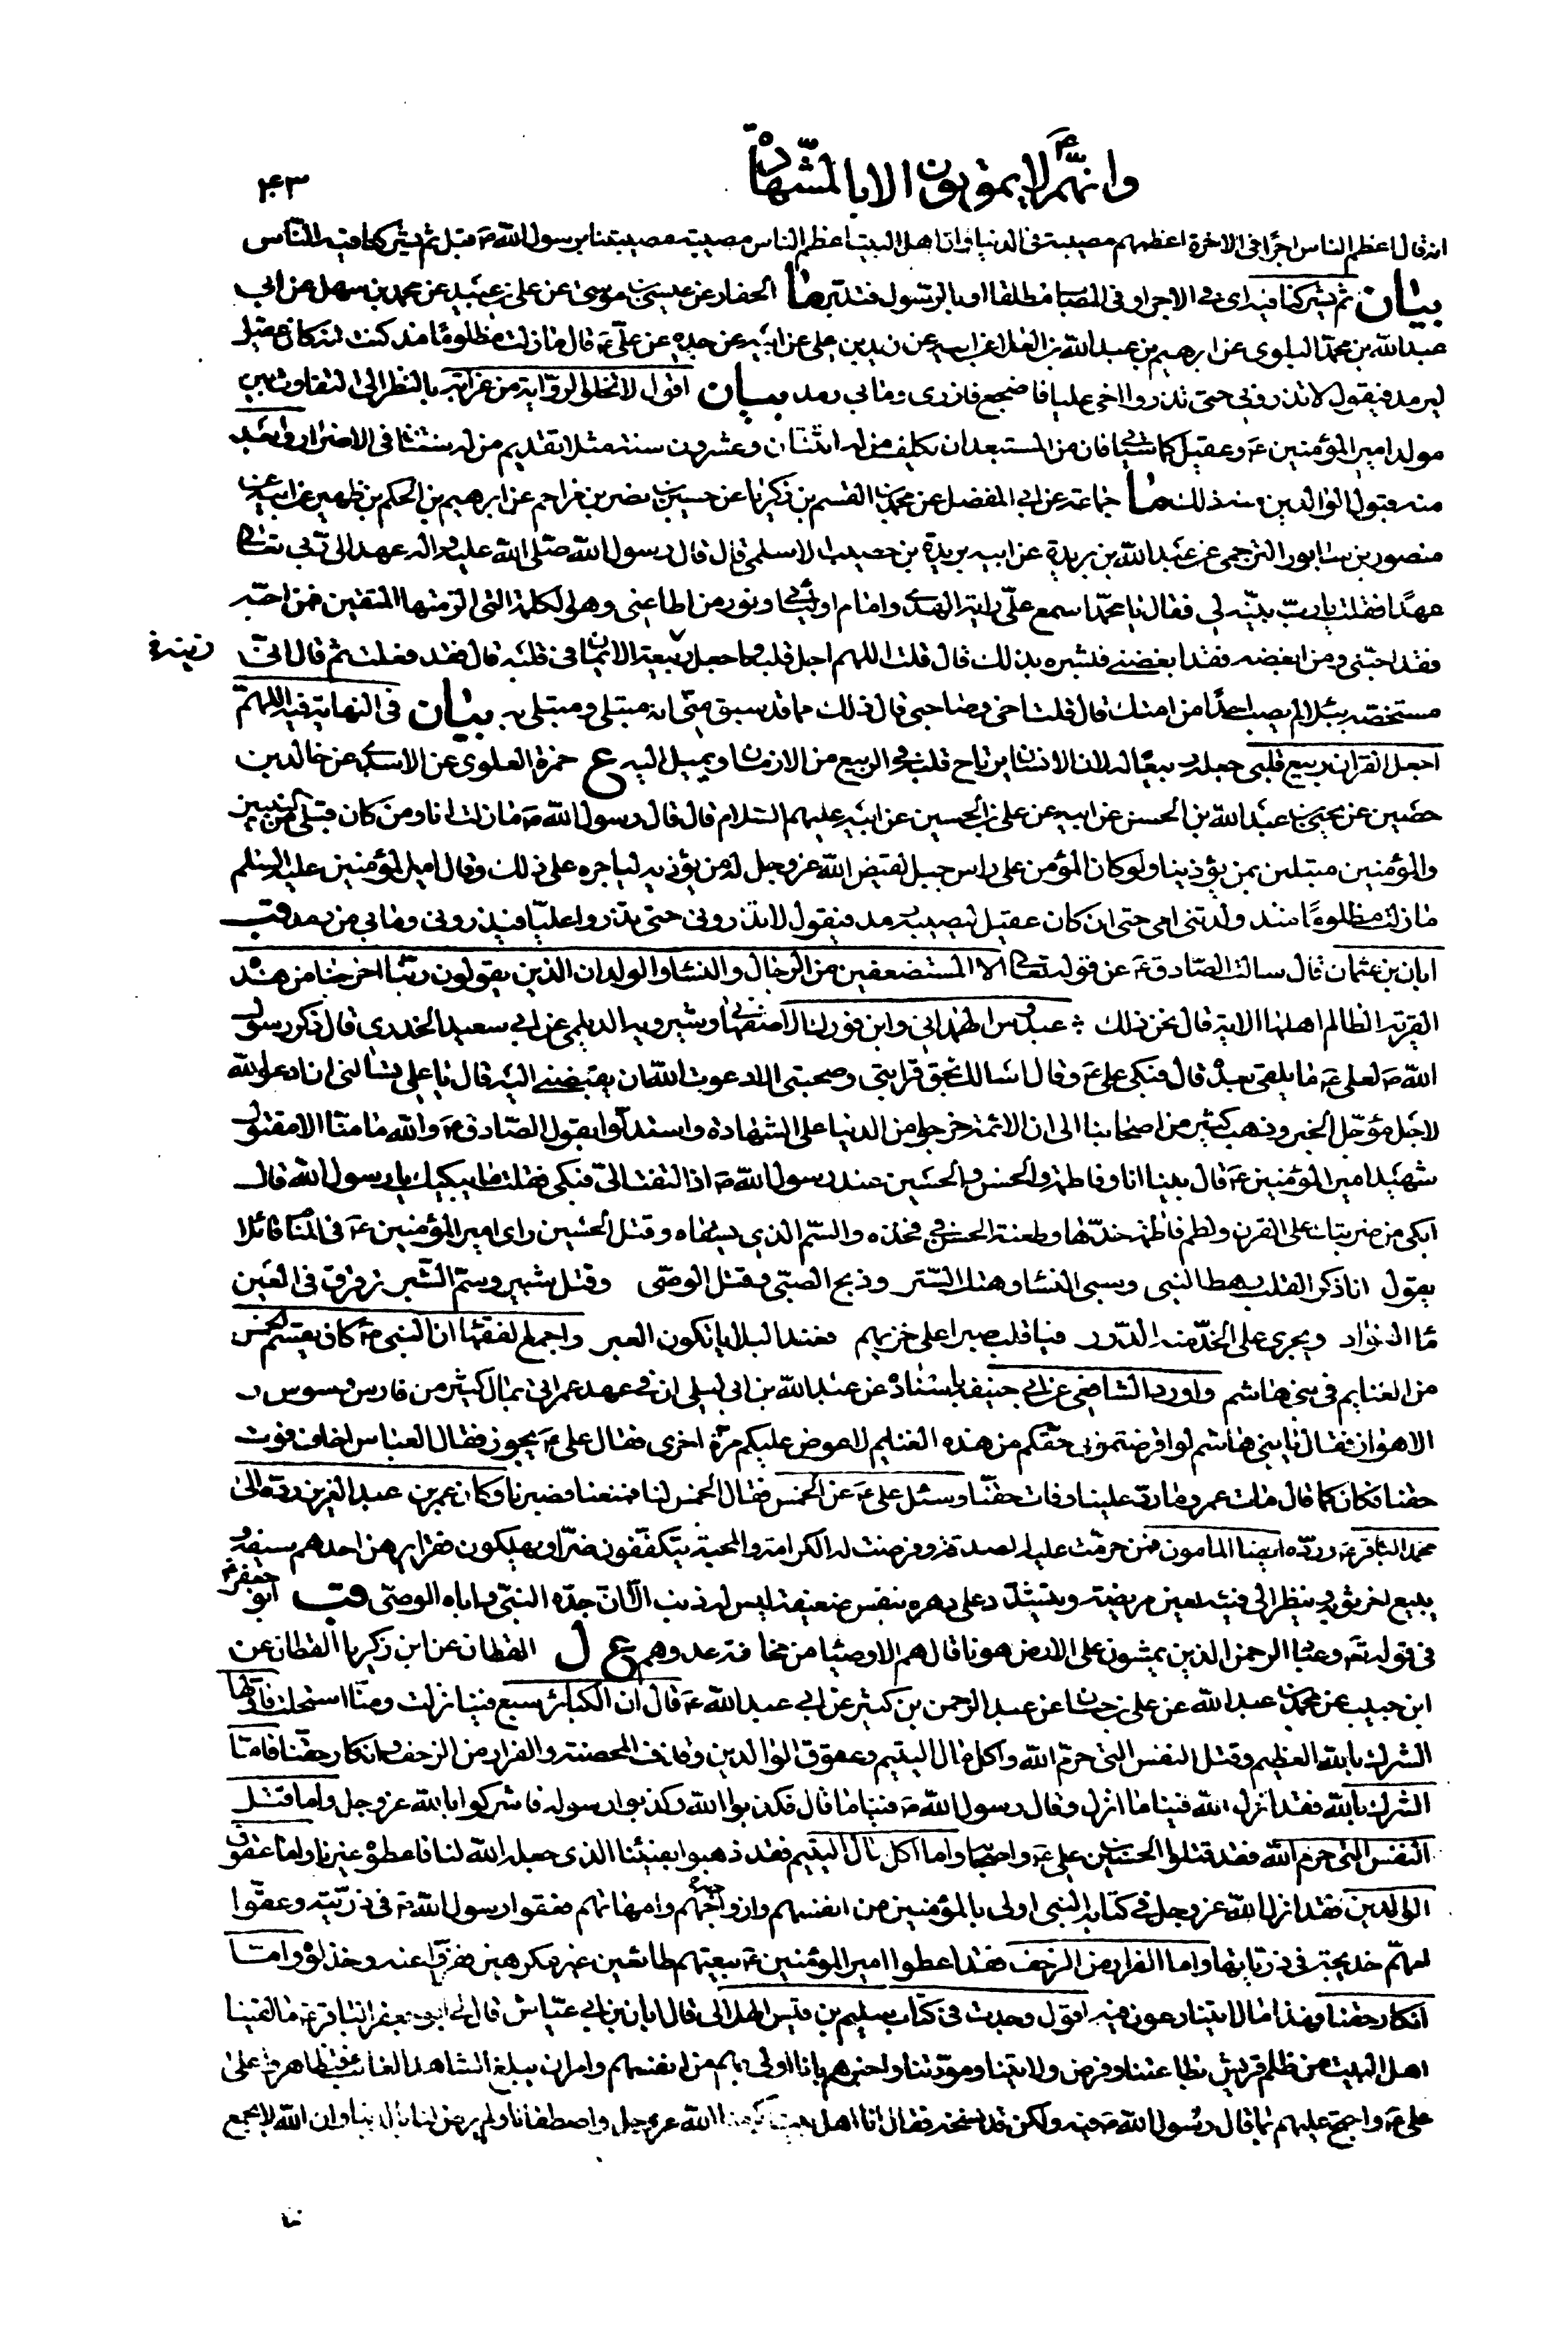 وانهم ع لا يموتون الا بالشهادة
٤٣
انه قال اعظم الناس اجرا فى الاخرة اعظمهم مصيبة فى الدنيا وانا اهل البيت اعظم الناس مصيبة مصيبتنا برسول الله ص قبل ثم يشركنا فيه الناس
بيان ثم يشركنا فيه اى فى الاجر او فى المصاب مطلقا او بالرسول فتدبر ما الحفار عن عيسى بن موسى عن على بن عبيد عن محمد بن سهل عن ابى
عبد الله بن محمد البلوى عن ابرهيم بن عبد الله بن العلا عن ابيه عن زيد بن على عن ابيه عن جده عن على ع قال ما زلت مظلوما منذ كنت انه كان عقيل
ليرمد فيقول لا تذرونى حتى تذروا اخى عليا فاضجع فاذرى وما بى رمد بيان اقول لا تخلو الرواية من غرابة بالنظر الى التفاوت بين
مولد امير المؤمنين ع وعقيل كما سيأتى فان من المستبعد ان يكلف من له اثنتان وعشرون سنة مثلا تقديم من له سنتان فى الاضرار وابعد
منه قبول الوالدين منه ذلك ما جماعة عن ابى المفضل عن محمد بن القسم بن زكريا عن حسين بن نصر بن مزاحم عن ابرهيم بن الحكم بن ظهير عن ابيه عن
منصور بن سابور البرجمى عن عبد الله بن بريدة عن ابيه بريدة بن حصيب الاسلمى قال قال رسول الله صلى الله عليه واله عهد الى ربى تعالى
عهدا فقلت يا رب بينه لى فقال يا محمد اسمع على راية الهدى وامام اوليائى ونور من اطاعنى وهو الكلمة التى الزمتها المتقين فمن احبه
فقد احبنى ومن ابغضه فقد ابغضنى فبشره بذلك قال قلت اللهم اجل قلبه واجعل ربيعة الايمان فى قلبه قال فقد فعلت ثم قال انى
مستخصه ببلاء لم يصب احدا من امتك قال قلت اخى وصاحبى قال ذلك مما قد سبق منى انه مبتلى ومبتلى به بيان فى النهاية فيه اللهم
اجعل القران ربيع قلبى جعله ربيعا له لان الانسان يرتاح قلبه فى الربيع من الازمان ويميل اليه ع حمزة العلوى عن الاسدى عن خالد بن
حضين عن يحيى بن عبد الله بن الحسن عن ابيه عن على بن الحسين عن ابيه عليهم السلام قال قال رسول الله ص ما زلت انا ومن كان قبلى من النبيين
والمؤمنين مبتلين بمن يؤذينا ولو كان المؤمن على راس جبل لقيض الله عز وجل له من يؤذيه ليأجره على ذلك وقال امير المؤمنين عليه السلم
ما زلت مظلوما منذ ولدتنى امى حتى ان كان عقيل ليصيبه رمد فيقول لا تذرونى حتى تذروا عليا فيذرونى وما بى من رمد قب
ابان بن عثمان قال سالت الصادق ع عن قوله تعالى الا المستضعفين من الرجال والنساء والولدان الذين يقولون ربنا اخرجنا من هذه
القرية الظالم اهلها الاية قال نحن ذلك عبدوس الهمدانى وابن فورك الاصفهانى وشيرويه الديلمى عن ابى سعيد الخدرى قال ذكر رسول
الله ص لعلى ع ما يلقى بعده قال فبكى على ع وقال اسالك بحق قرابتى وصحبتى الا دعوت الله ان يقبضنى اليه قال يا على تسالنى ان ادعو الله
لاجل مؤجل الخبر وذهب كثير من اصحابنا الى ان الائمة خرجوا من الدنيا على الشهادة واستدلوا بقول الصادق ع والله ما منا الا مقتول
شهيد امير المؤمنين ع قال بينا انا وفاطمة والحسن والحسين عند رسول الله ص اذا التفت الى فبكى فقلت ما يبكيك يا رسول الله قال
ابكى من ضربتك على القرن ولطم فاطمة خدها وطعنة الحسن فى فخذه والسم الذى يسقاه وقتل الحسين راى امير المؤمنين ع فى المنام قائلا
يقول اذا ذكر القلب رهط النبى وسبى النساء وهتك الستر وذبح الصبى وقتل الوصى وقتل شبير وسم الشبر ترقرق فى العين
ماء الفؤاد ويجرى على الخد منه الدرر فيا قلب صبرا على حزنهم فعند البلايا تكون العبر واجمع الفقهاء ان النبى ص كان يقسم الخمس
من الغنايم فى بنى هاشم واورد الشافعى عن ابى حنيفة باسناده عن عبد الله بن ابى ليلى ان فى عهد عمر اتى بمال كثير من فارس وسوس و
الاهواز فقال يا بنى هاشم لو اقرضتمونى حقكم من هذه الغنايم لاعوض عليكم مرة اخرى فقال على ع يجوز فقال العباس اخاف فوت
حقنا فكان كما قال مات عمر وما رد علينا وفات حقنا وسئل على ع عن الخمس فقال الخمس لنا فمنعنا فصبرنا وكان عمر بن عبد العزيز رده الى
محمد الباقر ع ورده ايضا المامون فمن حرمت عليه الصدقة وفرضت له الكرامة والمحبة يتكففون ضرا ويهلكون فقرا يرهن احدهم سيفه و
يبيع اخر ثوبه وينظر الى فيئه بعين مريضة ويتشدد على دهره بنفس ضعيفة ليس له ذنب الا ان جده النبى واباه الوصى قب ابو جعفر ع
فى قوله تع وعباد الرحمن الذين يمشون على الارض هونا قال هم الاوصياء من مخافة عدوهم ع ل القطان عن ابن زكريا القطان عن
ابن حبيب عن محمد بن عبد الله عن على بن حسان عن عبد الرحمن بن كثير عن ابى عبد الله ع قال ان الكبائر سبع فينا نزلت ومنا استحلت فاولها
الشرك بالله العظيم وقتل النفس التى حرم الله واكل مال اليتيم وعقوق الوالدين وقذف المحصنة والفرار من الزحف وانكار حقنا فاما
الشرك بالله فقد انزل الله فينا ما انزل وقال رسول الله ص فينا ما قال فكذبوا الله وكذبوا رسوله فاشركوا بالله عز وجل واما قتل
النفس التى حرم الله فقد قتلوا الحسين بن على ع واصحابه واما اكل مال اليتيم فقد ذهبوا بفيئنا الذى جعله الله لنا فاعطوه غيرنا واما عقوق
الوالدين فقد انزل الله عز وجل فى كتابه النبى اولى بالمؤمنين من انفسهم وازواجه امهاتهم فعقوا رسول الله ص فى ذريته وعقوا
امهم خديجة فى ذريتها واما الفرار من الزحف فقد اعطوا امير المؤمنين ع بيعتهم طائعين غير مكرهين ففروا عنه وخذلوه واما
انكار حقنا فهذا ما لا يتنازعون فيه اقول وجدت فى كتاب سليم بن قيس الهلالى قال ابان بن ابى عياش قال لى ابو جعفر الباقر ع ما لقينا
اهل البيت من ظلم قريش
على ع واحتج عليهم بما قال رسول الله ص فيه